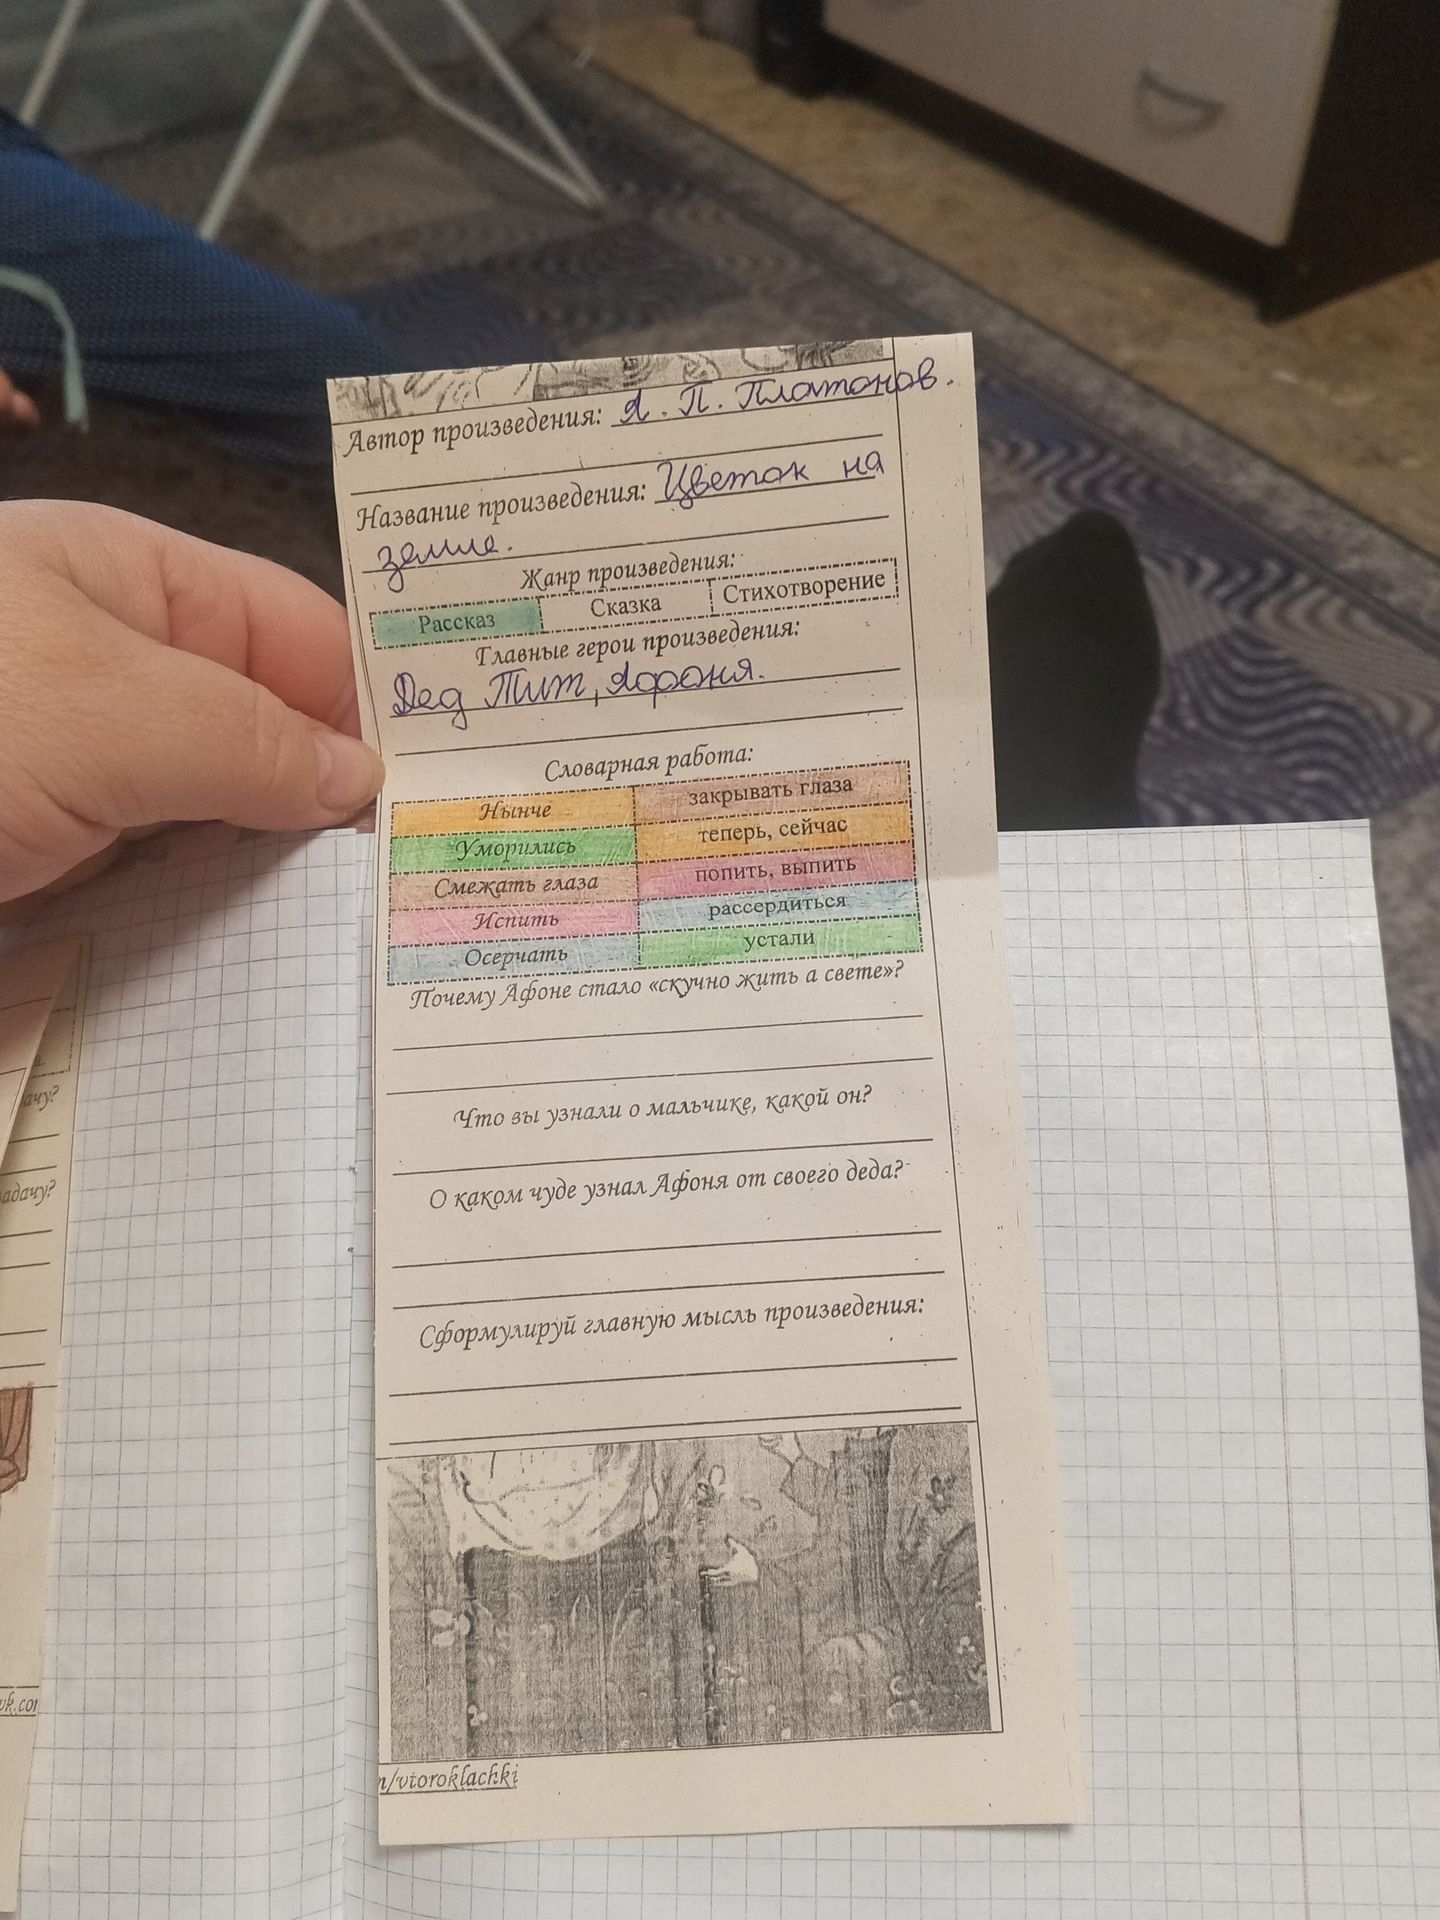 Автор произведения: А. П. Платонов.
Название произведения: Цветок на
земле.
Жанр произведения:
Рассказ Сказка Стихотворение
Главные герои произведения:
Дед Тит, Афоня.
Словарная работа:
Нынче закрывать глаза
Уморились теперь, сейчас
Смежать глаза попить, выпить
Испить рассердиться
Осерчать устали
Почему Афоне стало «скучно жить а свете»?
Что вы узнали о мальчике, какой он?
О каком чуде узнал Афоня от своего деда?
Сформулируй главную мысль произведения:
/vtoroklachki
ачу?
адачу?
vk.co